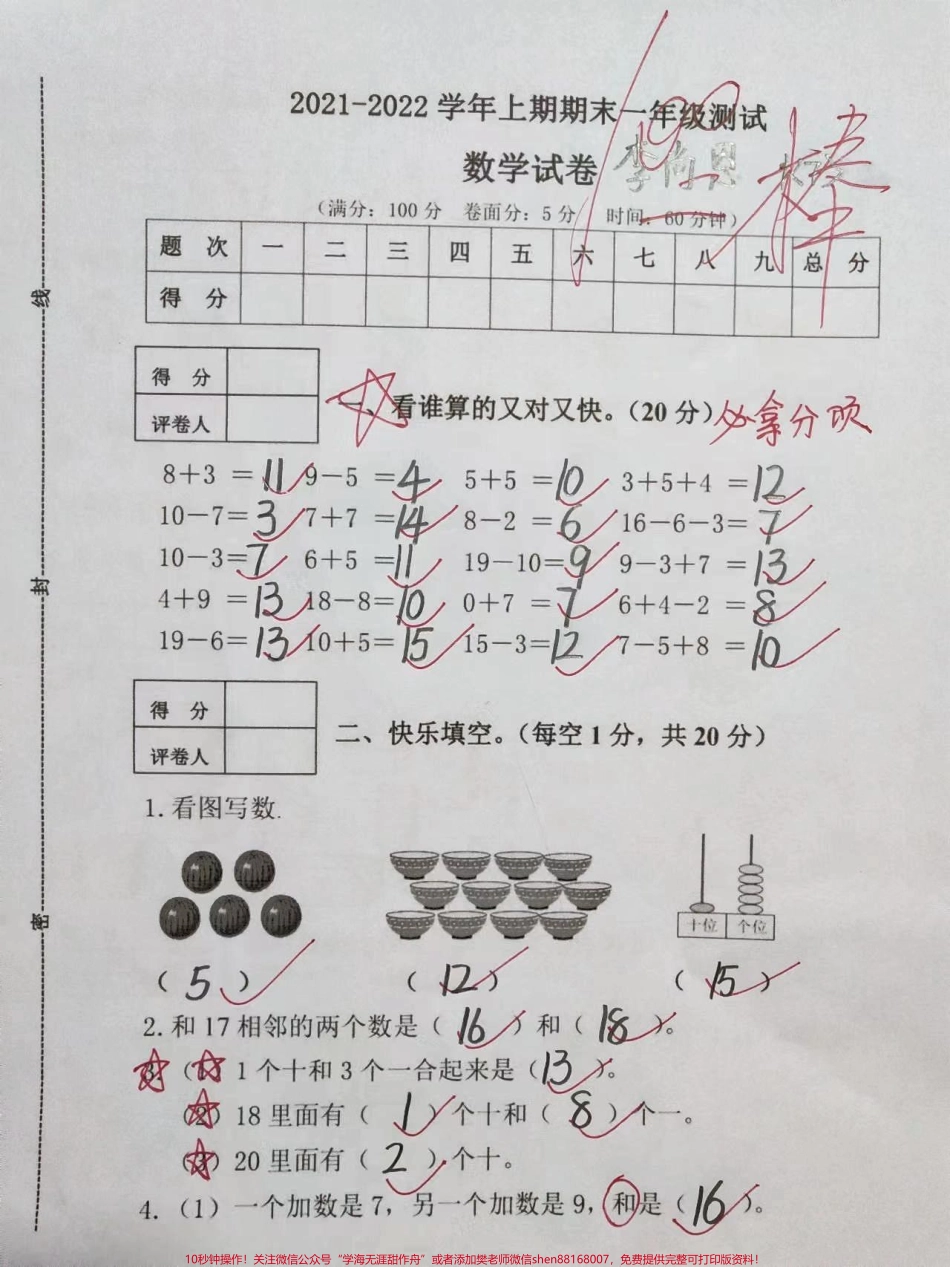 2021-2022 学年上期期末一年级测试
100
数学试卷 李尚恩
棒
（满分：100 分 卷面分：5 分 时间：60 分钟）
题 次 一 二 三 四 五 六 七 八 九 总 分
得 分
得 分
评卷人
一、看谁算的又对又快。（20 分）必拿分项
8＋3 ＝11 9－5 ＝4 5＋5 ＝10 3＋5＋4 ＝12
10－7＝3 7＋7 ＝14 8－2 ＝6 16－6－3＝7
10－3＝7 6＋5 ＝11 19－10＝9 9－3＋7 ＝13
4＋9 ＝13 18－8＝10 0＋7 ＝7 6＋4－2 ＝8
19－6＝13 10＋5＝15 15－3＝12 7－5＋8 ＝10
得 分
评卷人
二、快乐填空。（每空 1 分，共 20 分）
1. 看图写数.
十位 个位
（ 5 ） （ 12 ） （ 15 ）
2. 和 17 相邻的两个数是（ 16 ）和（ 18 ）。
3.（1）1 个十和 3 个一合起来是（ 13 ）。
（2）18 里面有（ 1 ）个十和（ 8 ）个一。
（3）20 里面有（ 2 ）个十。
4.（1）一个加数是 7，另一个加数是 9，和是（ 16 ）。
线
封
密
10秒钟操作！关注微信公众号“学海无涯甜作舟”或者添加樊老师微信shen88168007，免费提供完整可打印版资料！